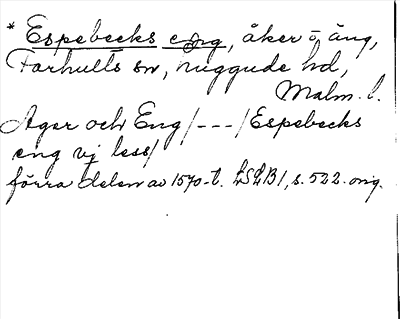 * Espebecks eng, åker o äng,
Farhults sn, Luggude hd,
Malm. l.
Ager och Eng/---/Espebecks
eng vj less/
förra delen av 1570-t. LSLB1, s. 522. orig.